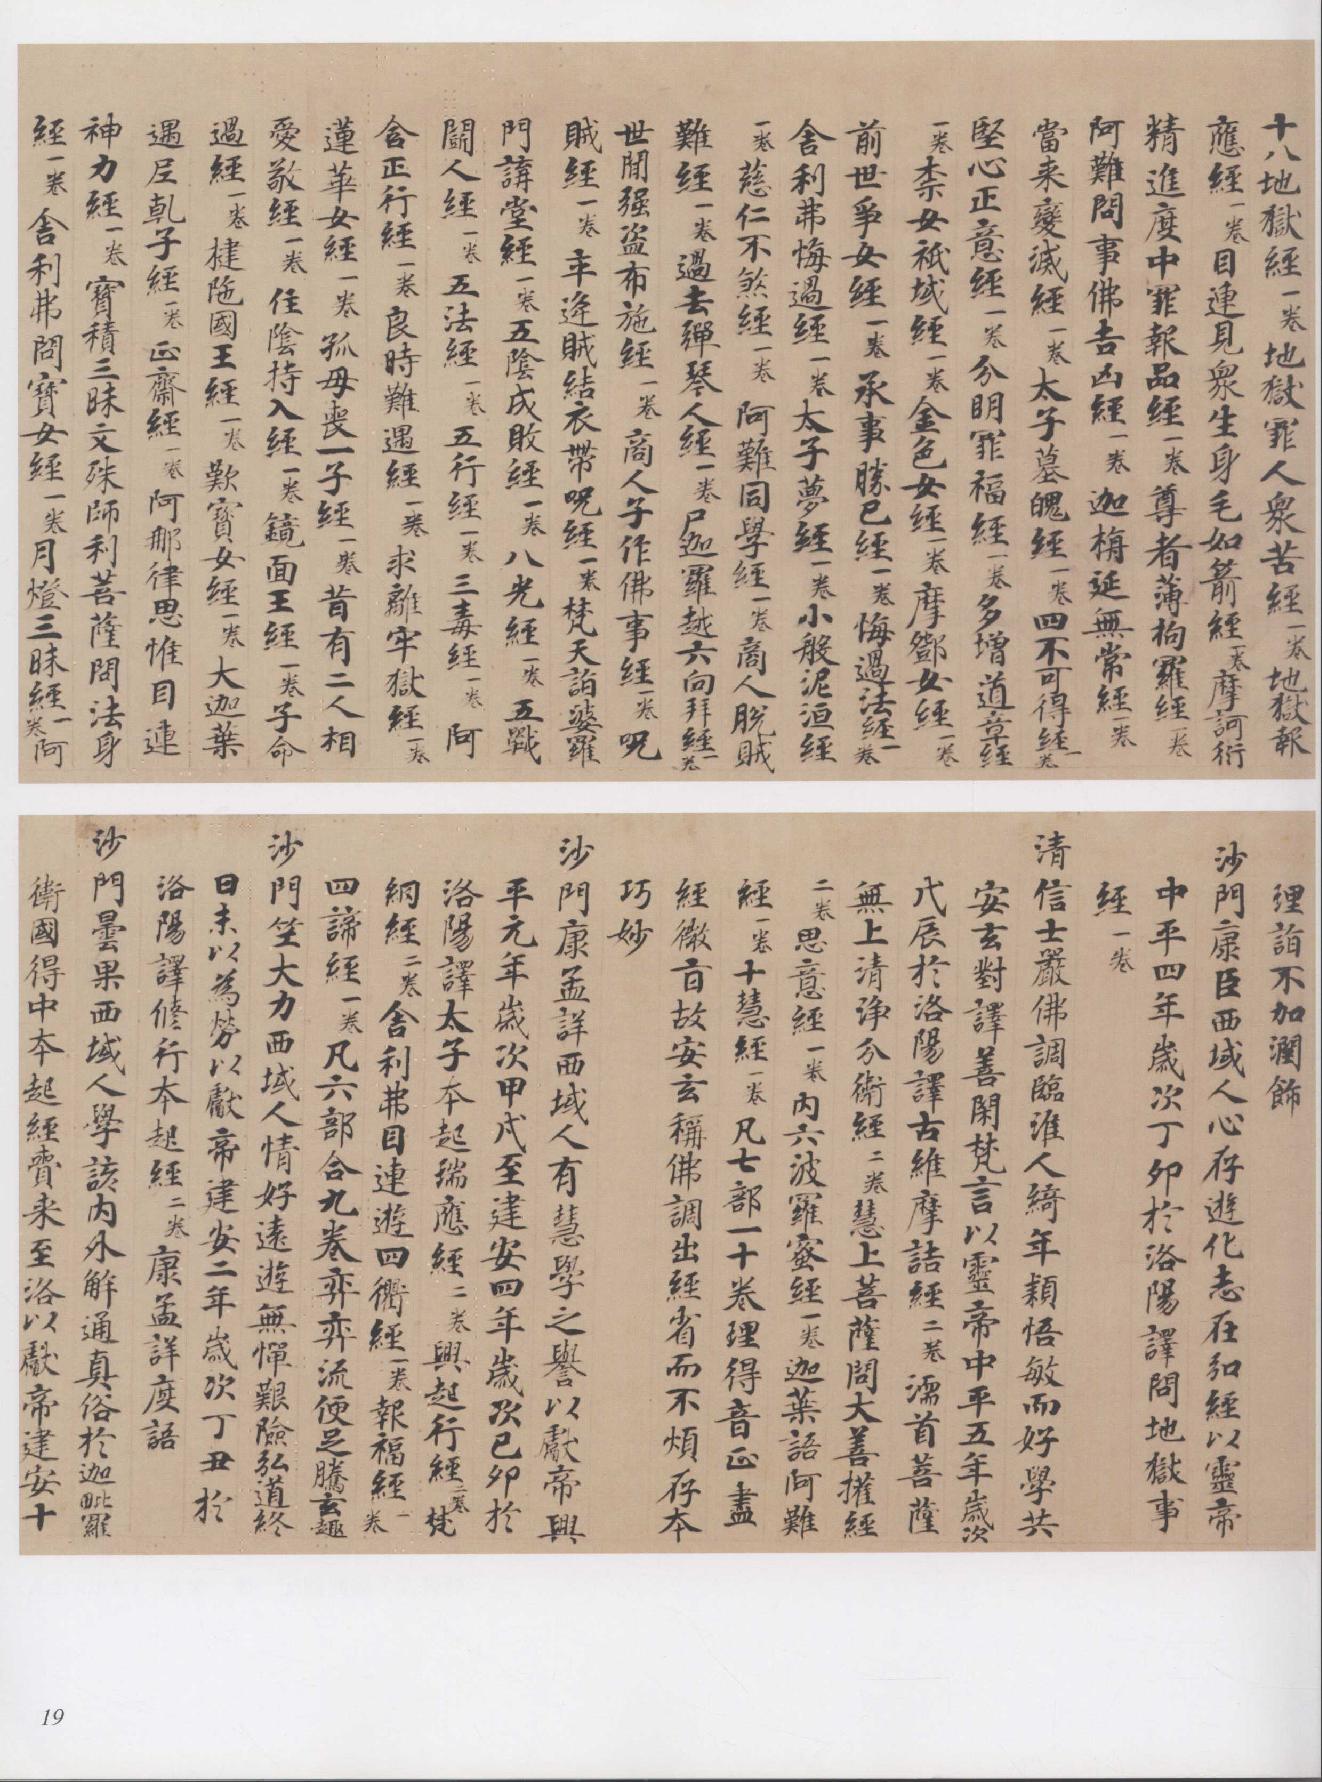 十八地獄經一卷地獄罪人衆苦經一卷地獄報
應經一卷目連見衆生身毛如箭經一卷摩訶衍
精進度中罪報品經一卷尊者薄拘羅經一卷
阿難問事佛吉凶經一卷迦旃延無常經一卷
當来變滅經一卷太子墓魄經一卷四不可得經一卷
堅心正意經一卷分明罪福經一卷多增道章經
一卷柰女祇域經一卷金色女經一卷摩鄧女經一卷
前世爭女經一卷承事勝已經一卷悔過法經一卷
舍利弗悔過經一卷太子夢經一卷小般泥洹經
一卷慈仁不煞經一卷阿難同學經一卷商人脫賊
難經一卷過去彈琴人經一卷尸迦羅越六向拜經一卷
世間强盗布施經一卷商人子作佛事經一卷呪
賊經一卷卒逢賊結衣帶呪經一卷梵天詣婆羅
門講堂經一卷五陰成敗經一卷八光經一卷五戰
鬪人經一卷五法經一卷五行經一卷三毒經一卷阿
含正行經一卷良時難遇經一卷求離牢獄經一卷
蓮華女經一卷孤母喪一子經一卷昔有二人相
愛敬經一卷住陰持入經一卷鏡面王經一卷子命
過經一卷揵陁國王經一卷歎寶女經一卷大迦葉
遇尼乹子經一卷正齋經一卷阿那律思惟目連
神力經一卷寶積三昧文殊師利菩薩問法身
經一卷舍利弗問寶女經一卷月燈三昧經一卷阿
理詣不加潤飾
沙門康臣西域人心存遊化志在弘經以靈帝
中平四年歲次丁卯於洛陽譯問地獄事
經一卷
清信士嚴佛調臨淮人綺年穎悟敏而好學共
安玄對譯善閑梵言以靈帝中平五年歲次
戊辰於洛陽譯古維摩詰經二卷濡首菩薩
無上清淨分衛經二卷慧上菩薩問大善權經
二卷思意經一卷內六波羅蜜經一卷迦葉詰阿難
經一卷十慧經一卷凡七部一十卷理得音正盡
經微旨故安玄稱佛調出經省而不煩存本
巧妙
沙門康孟詳西域人有慧學之譽以獻帝興
平元年歲次甲戌至建安四年歲次己卯於
洛陽譯太子本起瑞應經二卷興起行經二卷梵
網經二卷舍利弗目連遊四衢經一卷報福經一卷
四諦經一卷凡六部合九卷弈弈流便足騰玄趣
沙門竺大力西域人情好遠遊無憚艱險弘道終
日未以為勞以獻帝建安二年歲次丁丑於
洛陽譯修行本起經二卷康孟詳度語
沙門曇果西域人學該內外解通真俗於迦毗羅
衛國得中本起經賷来至洛以獻帝建安十
19